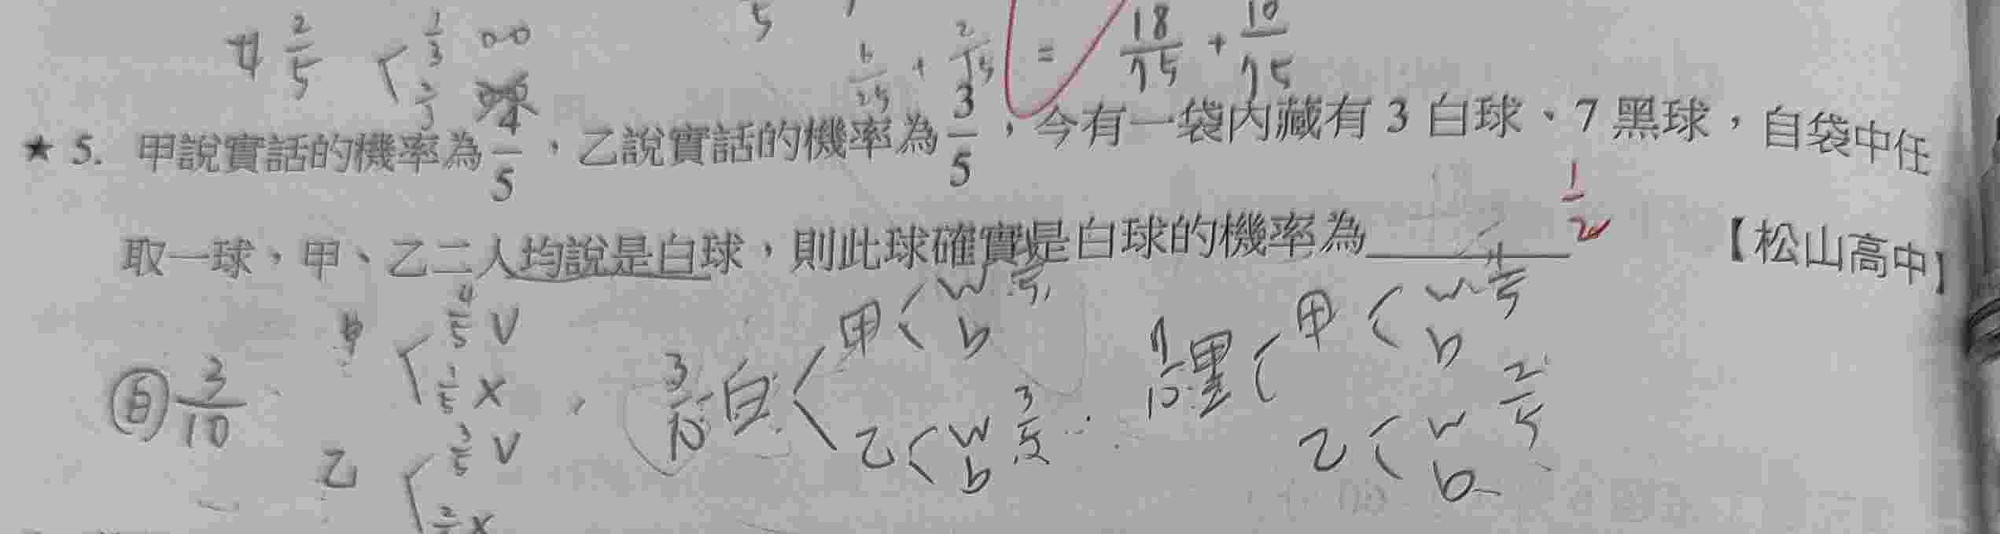 甲 2/5 < 1/3 00
2/3
5
6/25 + 2/15 = 18/75 + 10/75
★ 5. 甲說實話的機率為 4/5，乙說實話的機率為 3/5，今有一袋內藏有 3 白球、7 黑球，自袋中任
取一球，甲、乙二人均說是白球，則此球確實是白球的機率為 1/2 【松山高中】
白 3/10 甲 < 4/5 V
1/5 X
乙 < 3/5 V
2/5 X
3/10 白 < 甲 < w
b
乙 < w 3/5
b
7/10 黑 < 甲 < w
b
乙 < w 2/5
b